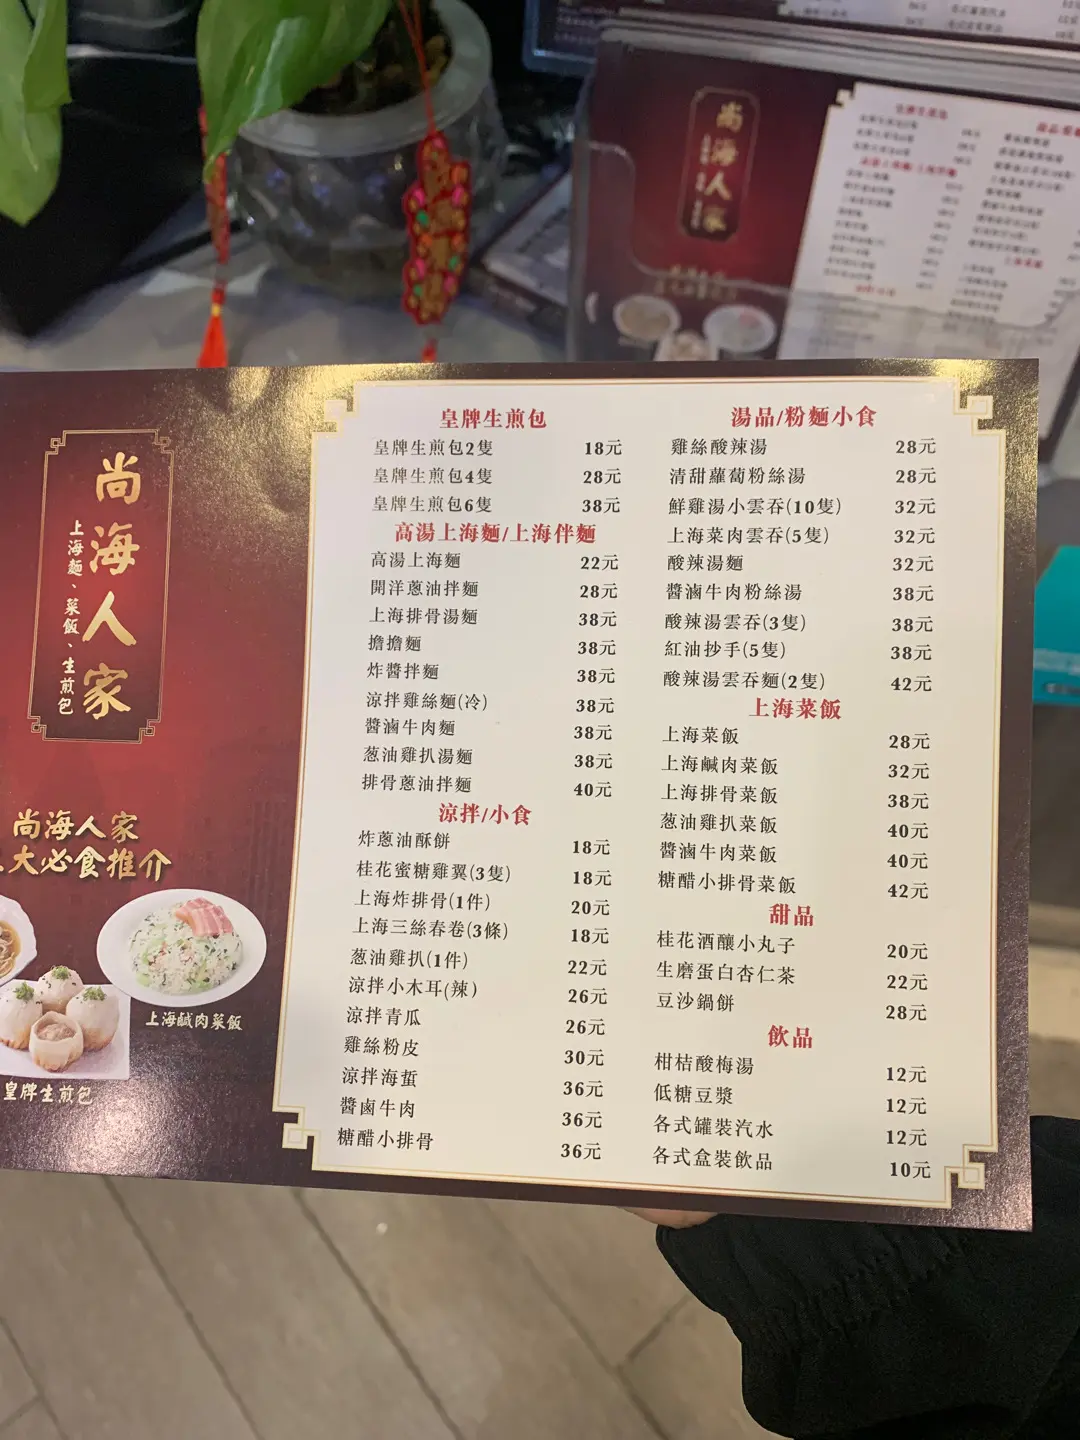 尚海人家
上海麵、菜飯、生煎包
尚海人家
大必食推介
上海鹹肉菜飯
皇牌生煎包
皇牌生煎包
皇牌生煎包2隻 18元
皇牌生煎包4隻 28元
皇牌生煎包6隻 38元
高湯上海麵/上海伴麵
高湯上海麵 22元
開洋蔥油拌麵 28元
上海排骨湯麵 38元
擔擔麵 38元
炸醬拌麵 38元
涼拌雞絲麵(冷) 38元
醬滷牛肉麵 38元
葱油雞扒湯麵 38元
排骨蔥油拌麵 40元
涼拌/小食
炸蔥油酥餅 18元
桂花蜜糖雞翼(3隻) 18元
上海炸排骨(1件) 20元
上海三絲春卷(3條) 18元
葱油雞扒(1件) 22元
涼拌小木耳(辣) 26元
涼拌青瓜 26元
雞絲粉皮 30元
涼拌海蜇 36元
醬鹵牛肉 36元
糖醋小排骨 36元
湯品/粉麵小食
雞絲酸辣湯 28元
清甜蘿蔔粉絲湯 28元
鮮雞湯小雲吞(10隻) 32元
上海菜肉雲吞(5隻) 32元
酸辣湯麵 32元
醬滷牛肉粉絲湯 38元
酸辣湯雲吞(3隻) 38元
紅油抄手(5隻) 38元
酸辣湯雲吞麵(2隻) 42元
上海菜飯
上海菜飯 28元
上海鹹肉菜飯 32元
上海排骨菜飯 38元
葱油雞扒菜飯 40元
醬滷牛肉菜飯 40元
糖醋小排骨菜飯 42元
甜品
桂花酒釀小丸子 20元
生磨蛋白杏仁茶 22元
豆沙鍋餅 28元
飲品
柑桔酸梅湯 12元
低糖豆漿 12元
各式罐裝汽水 12元
各式盒裝飲品 10元
尚海人家